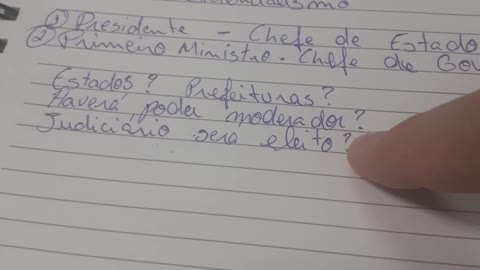 ① Presidente - Chefe de Estado
② Primeiro Ministro. Chefe de Gov
Estados? Prefeituras?
Haverá poder moderador?
Judiciário será eleito?